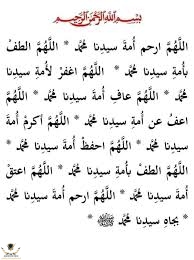 بسم الله الرحمن الرحيم
اللَّهُمَّ ارحم أُمةَ سيدِنا مُحَمَّد * اللَّهُمَّ الطفْ
بأُمةِ سيدِنا مُحَمَّد * اللَّهُمَّ اغفرْ لأُمةِ سيدِنا
مُحَمَّد * اللَّهُمَّ عافِ أُمةَ سيدِنا مُحَمَّد * اللَّهُمَّ
اعفُ عن أُمةِ سيدِنا مُحَمَّد * اللَّهُمَّ أكرمْ أُمةَ
سيدِنا مُحَمَّد * اللَّهُمَّ احفظْ أُمةَ سيدِنا مُحَمَّد *
اللَّهُمَّ الطفْ بأُمةِ سيدِنا مُحَمَّد * اللَّهُمَّ اعتقْ
أُمةَ سيدِنا مُحَمَّد * اللَّهُمَّ ارحم أُمةَ سيدِنا مُحَمَّد
* بجاهِ سيدِنا مُحَمَّد ﷺ *